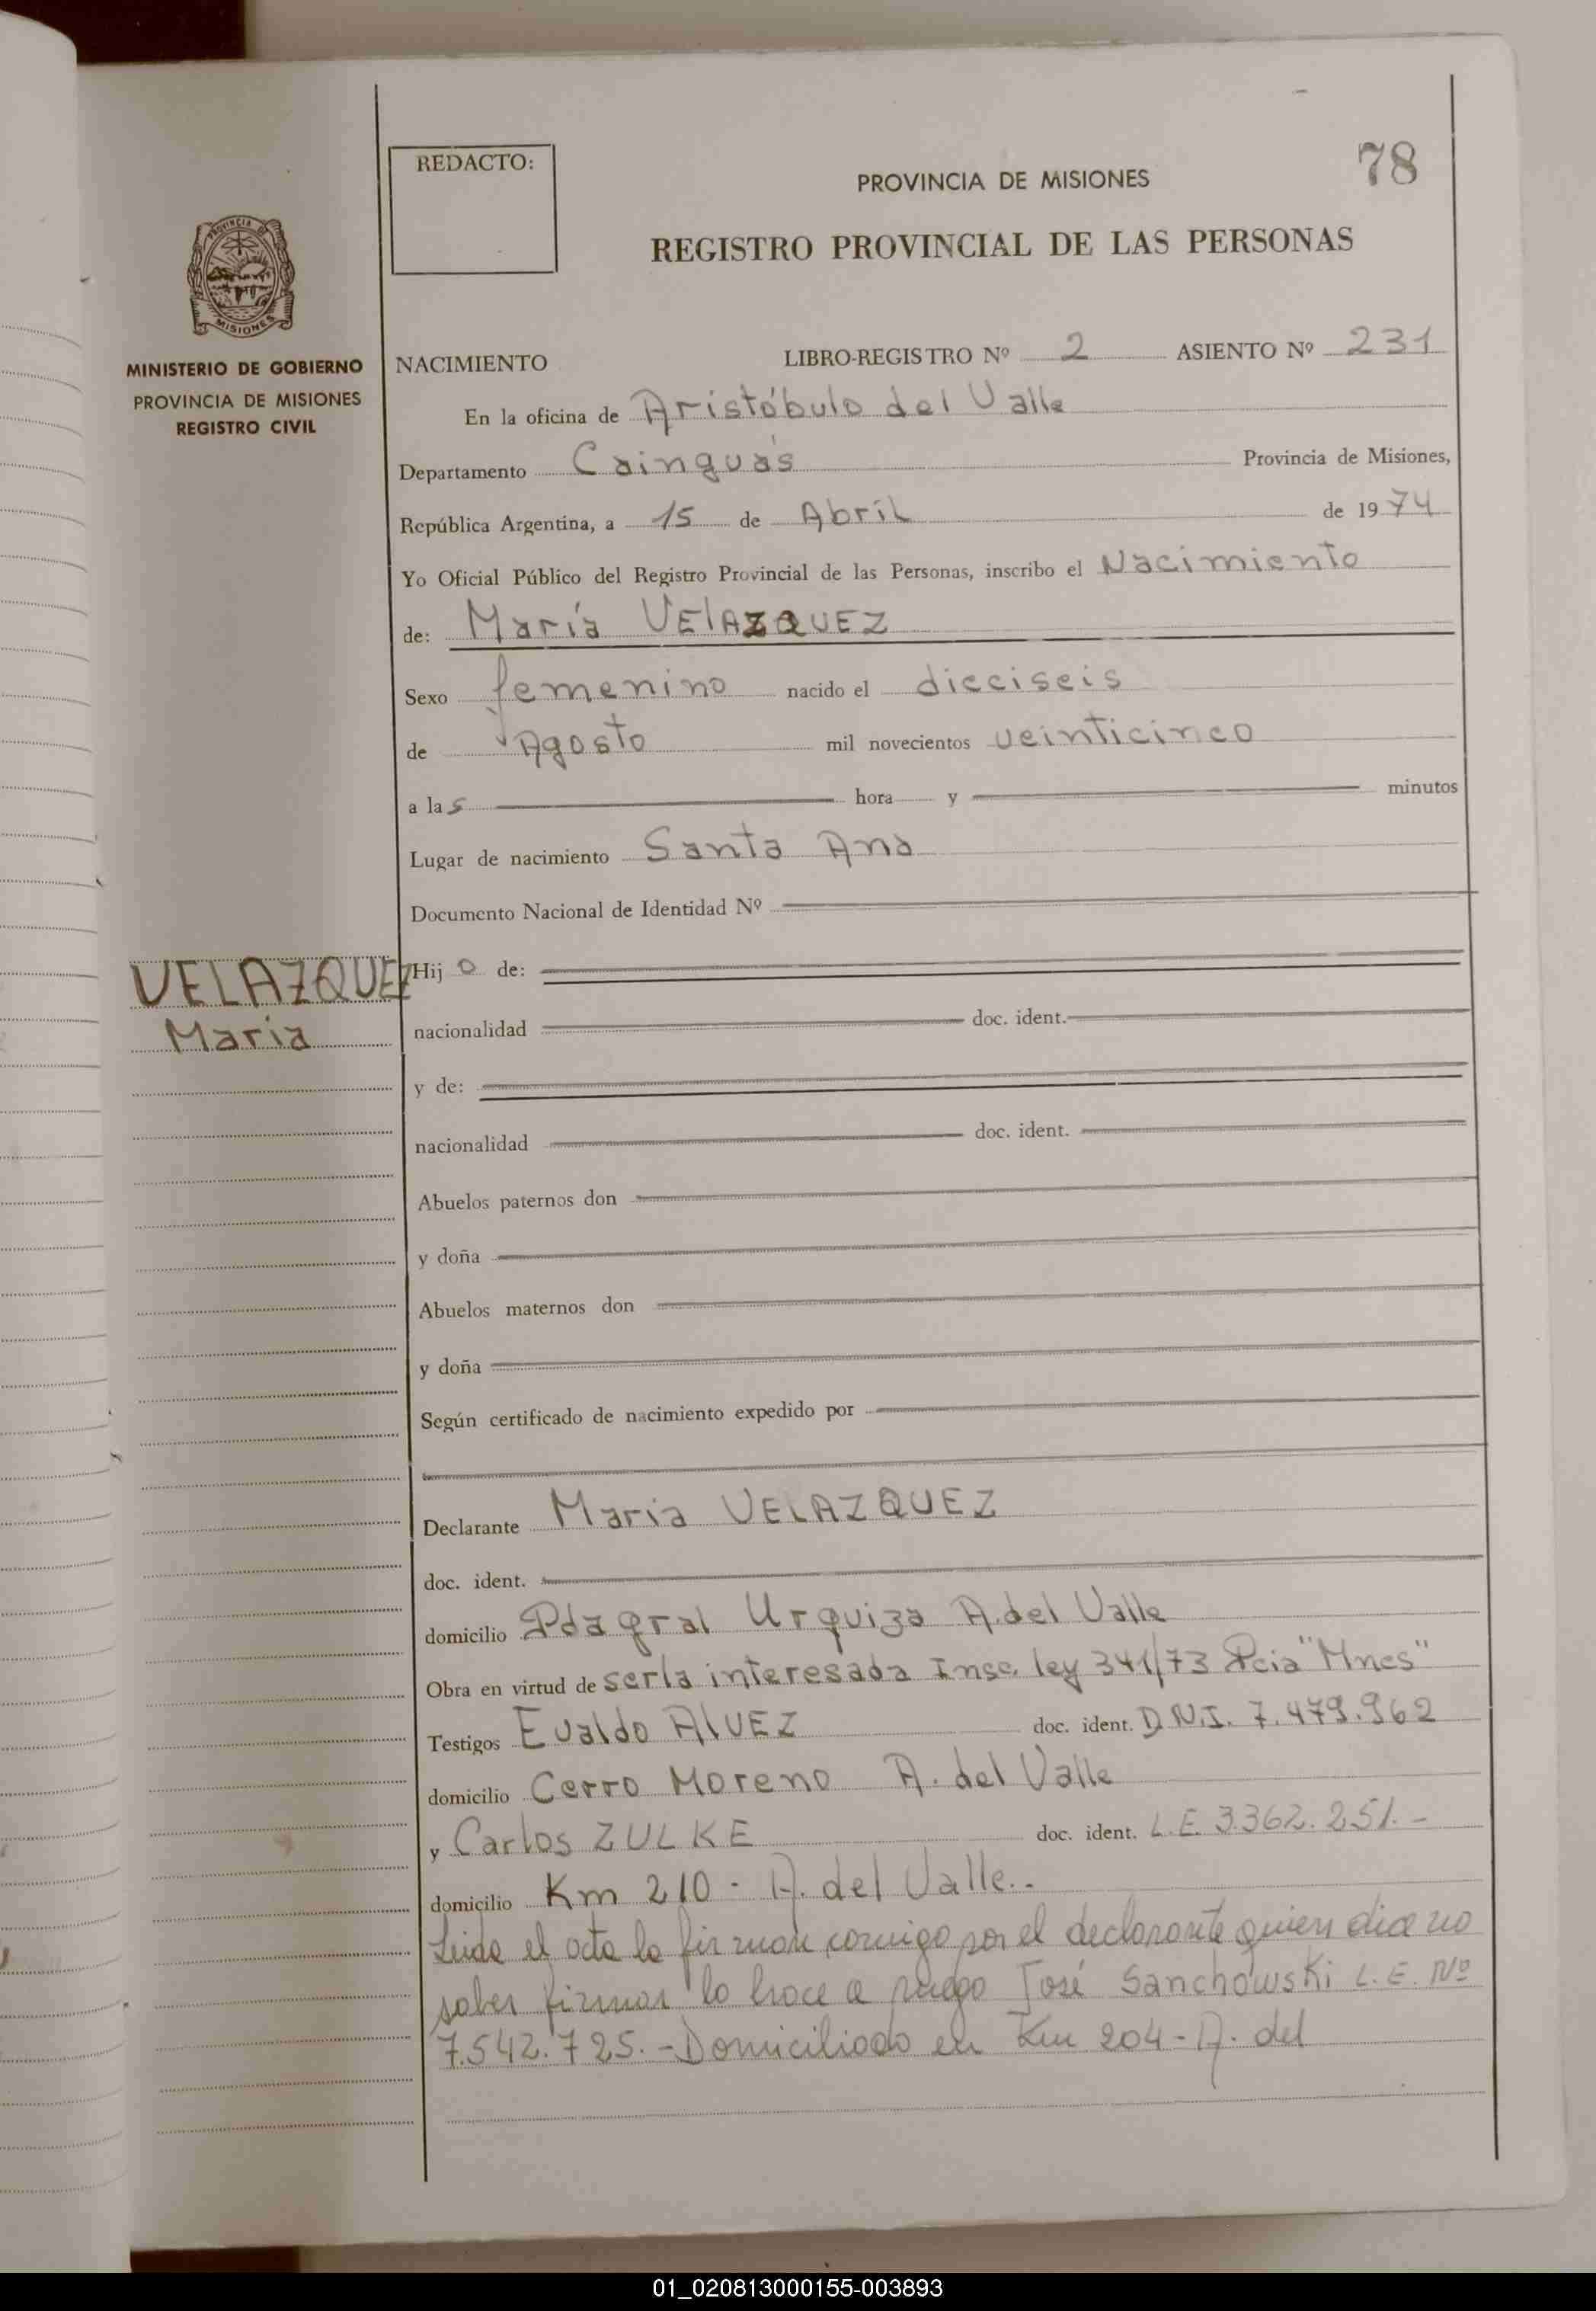 78
REDACTO:
PROVINCIA DE MISIONES
REGISTRO PROVINCIAL DE LAS PERSONAS
PROVINCIA DE
MISIONES
MINISTERIO DE GOBIERNO
PROVINCIA DE MISIONES
REGISTRO CIVIL
NACIMIENTO LIBRO-REGISTRO Nº 2 ASIENTO Nº 231
En la oficina de Aristóbulo del Valle
Departamento Cainguás Provincia de Misiones,
República Argentina, a 15 de Abril de 1974
Yo Oficial Público del Registro Provincial de las Personas, inscribo el Nacimiento
de: María VELAZQUEZ
Sexo femenino nacido el dieciseis
de Agosto mil novecientos veinticinco
a las hora y minutos
Lugar de nacimiento Santa Ana
Documento Nacional de Identidad Nº
VELAZQUEZ
Maria
Hijo de:
nacionalidad doc. ident.
y de:
nacionalidad doc. ident.
Abuelos paternos don
y doña
Abuelos maternos don
y doña
Según certificado de nacimiento expedido por
Declarante Maria VELAZQUEZ
doc. ident.
domicilio Pda gral Urquiza A. del Valle
Obra en virtud de serla interesada Insc. ley 341/73 Pcia "Mnes"
Testigos Evaldo AlVEZ doc. ident. D.N.I. 7.479.962
domicilio Cerro Moreno A. del Valle
y Carlos ZULKE doc. ident. L.E. 3.362.251.-
domicilio Km 210 - A. del Valle..
Leida el acta la firman conmigo por el declarante quien dice no
saber firmar lo hace a ruego José Sanchowski L.E. Nº
7.542.725.- Domiciliado en Km 204 - A. del
01_020813000155-003893